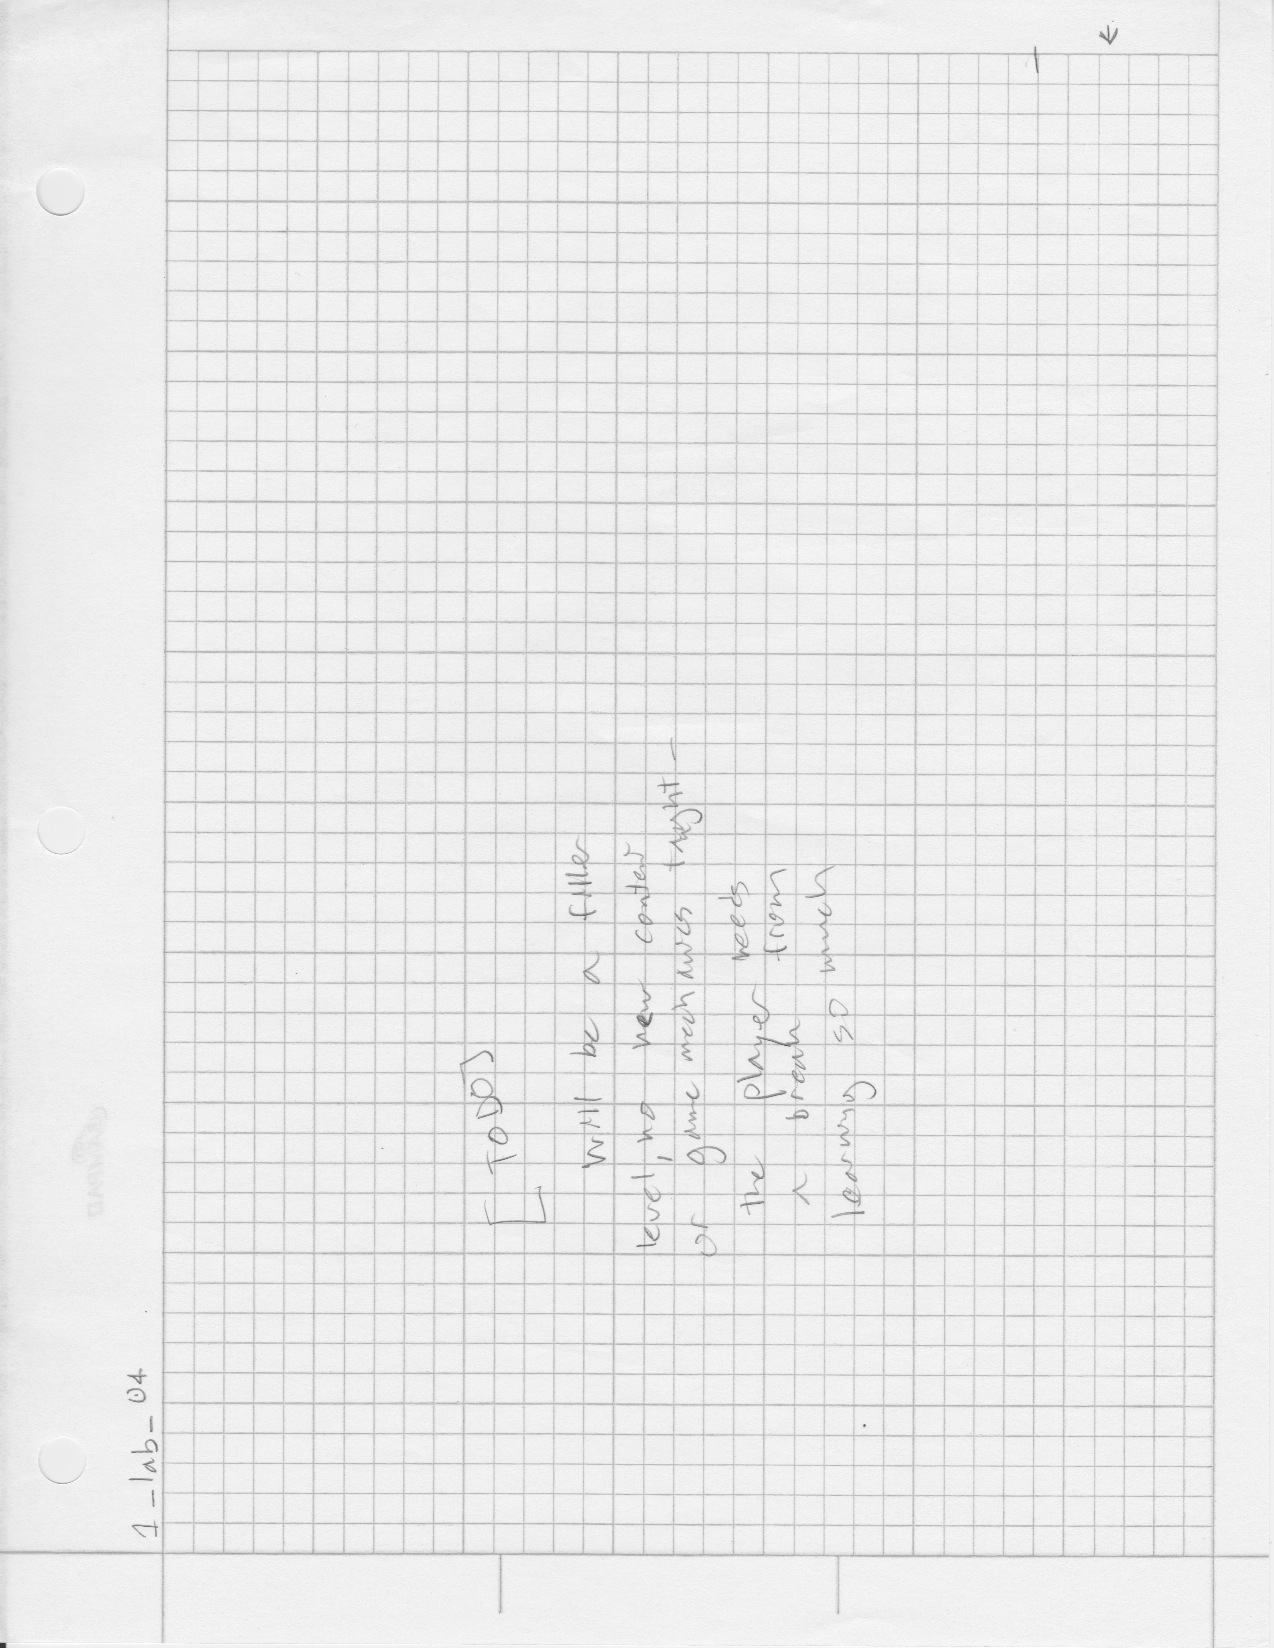 1_lab_04
[TODO]
will be a filler
level, no new content
or game mechanics taught -
the player needs
a break from
learning so much